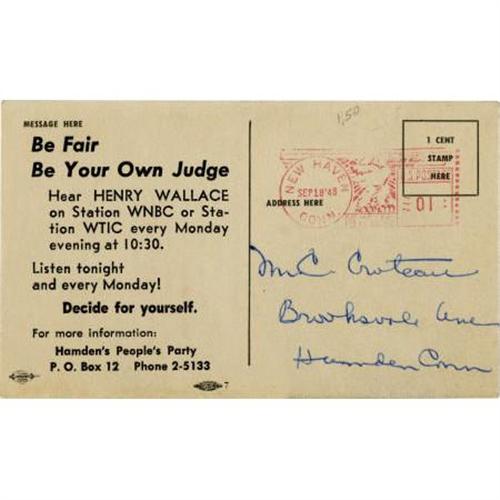 MESSAGE HERE
Be Fair
Be Your Own Judge
Hear HENRY WALLACE
on Station WNBC or Sta-
tion WTIC every Monday
evening at 10:30.
Listen tonight
and every Monday!
Decide for yourself.
For more information:
Hamden's People's Party
P. O. Box 12 Phone 2-5133
7
1,50
1 CENT
STAMP
HERE
NEW HAVEN
SEP 18 '48
CONN.
U.S. POSTAGE
01
ADDRESS HERE
M. C. Croteau
Brooksvale Ave
Hamden Conn